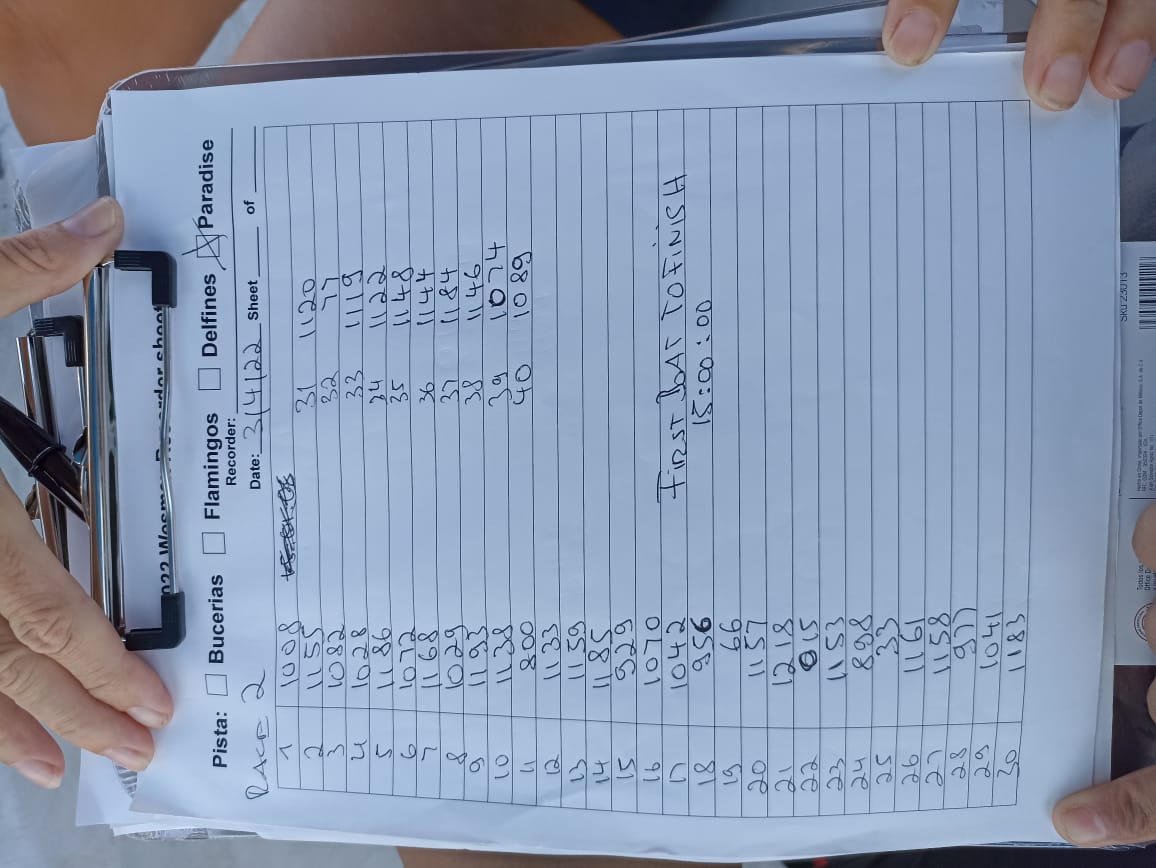 Pista: Bucerias Flamingos Delfines Paradise
Recorder:
RACE 2 Date: 3/4/22 Sheet of
1 1008
2 1155 31 1120
3 1082 32 77
4 1028 33 1119
5 1186 34 1122
6 1072 35 1148
7 1168 36 1144
8 1029 37 1184
9 1193 38 1146
10 1138 39 1074
11 800 40 1089
12 1133
13 1159
14 1185
15 929
16 1070
17 1042 FIRST BOAT TO FINISH
18 956 15:00:00
19 66
20 1157
21 1218
22 015
23 1153
24 898
25 33
26 1161
27 1158
28 977
29 1041
30 1183
SKU 23013